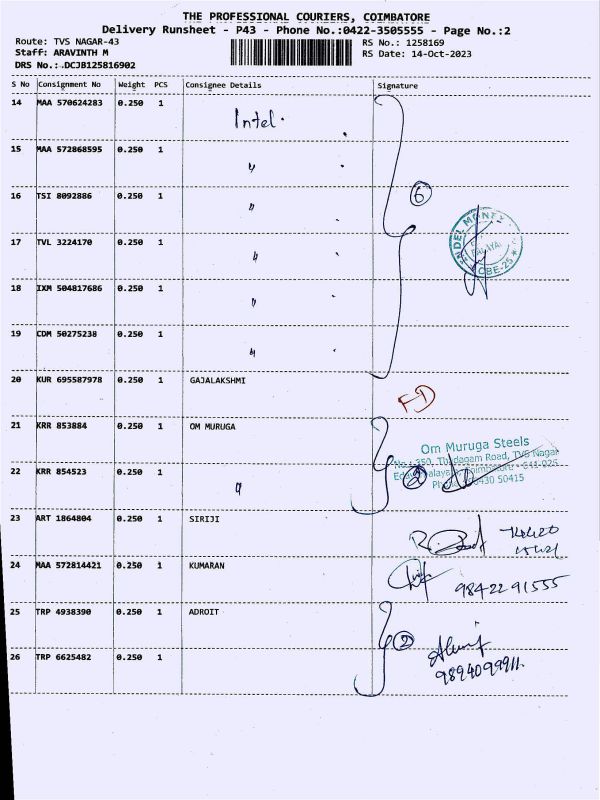 THE PROFESSIONAL COURIERS, COIMBATORE
Delivery Runsheet - P43 - Phone No.:0422-3505555 - Page No.:2
Route: TVS NAGAR-43
RS No.: 1258169
Staff: ARAVINTH M
RS Date: 14-Oct-2023
DRS No.:.DCJB125816902
S No Consignment No Weight PCS Consignee Details Signature
14 MAA 570624283 0.250 1 Intel.
15 MAA 572868595 0.250 1 〃
16 TSI 8092886 0.250 1 〃
6
17 TVL 3224170 0.250 1 〃
18 IXM 504817686 0.250 1 〃
19 CDM 50275238 0.250 1 〃
20 KUR 695587978 0.250 1 GAJALAKSHMI
FD
21 KRR 853884 0.250 1 OM MURUGA
Om Muruga Steels
Thadagam Road, TVS Nagar
22 KRR 854523 0.250 1 〃 2
50415
23 ART 1864804 0.250 1 SIRIJI
24 MAA 572814421 0.250 1 KUMARAN
98422 91555
25 TRP 4938390 0.250 1 ADROIT
2
26 TRP 6625482 0.250 1
9894099911.